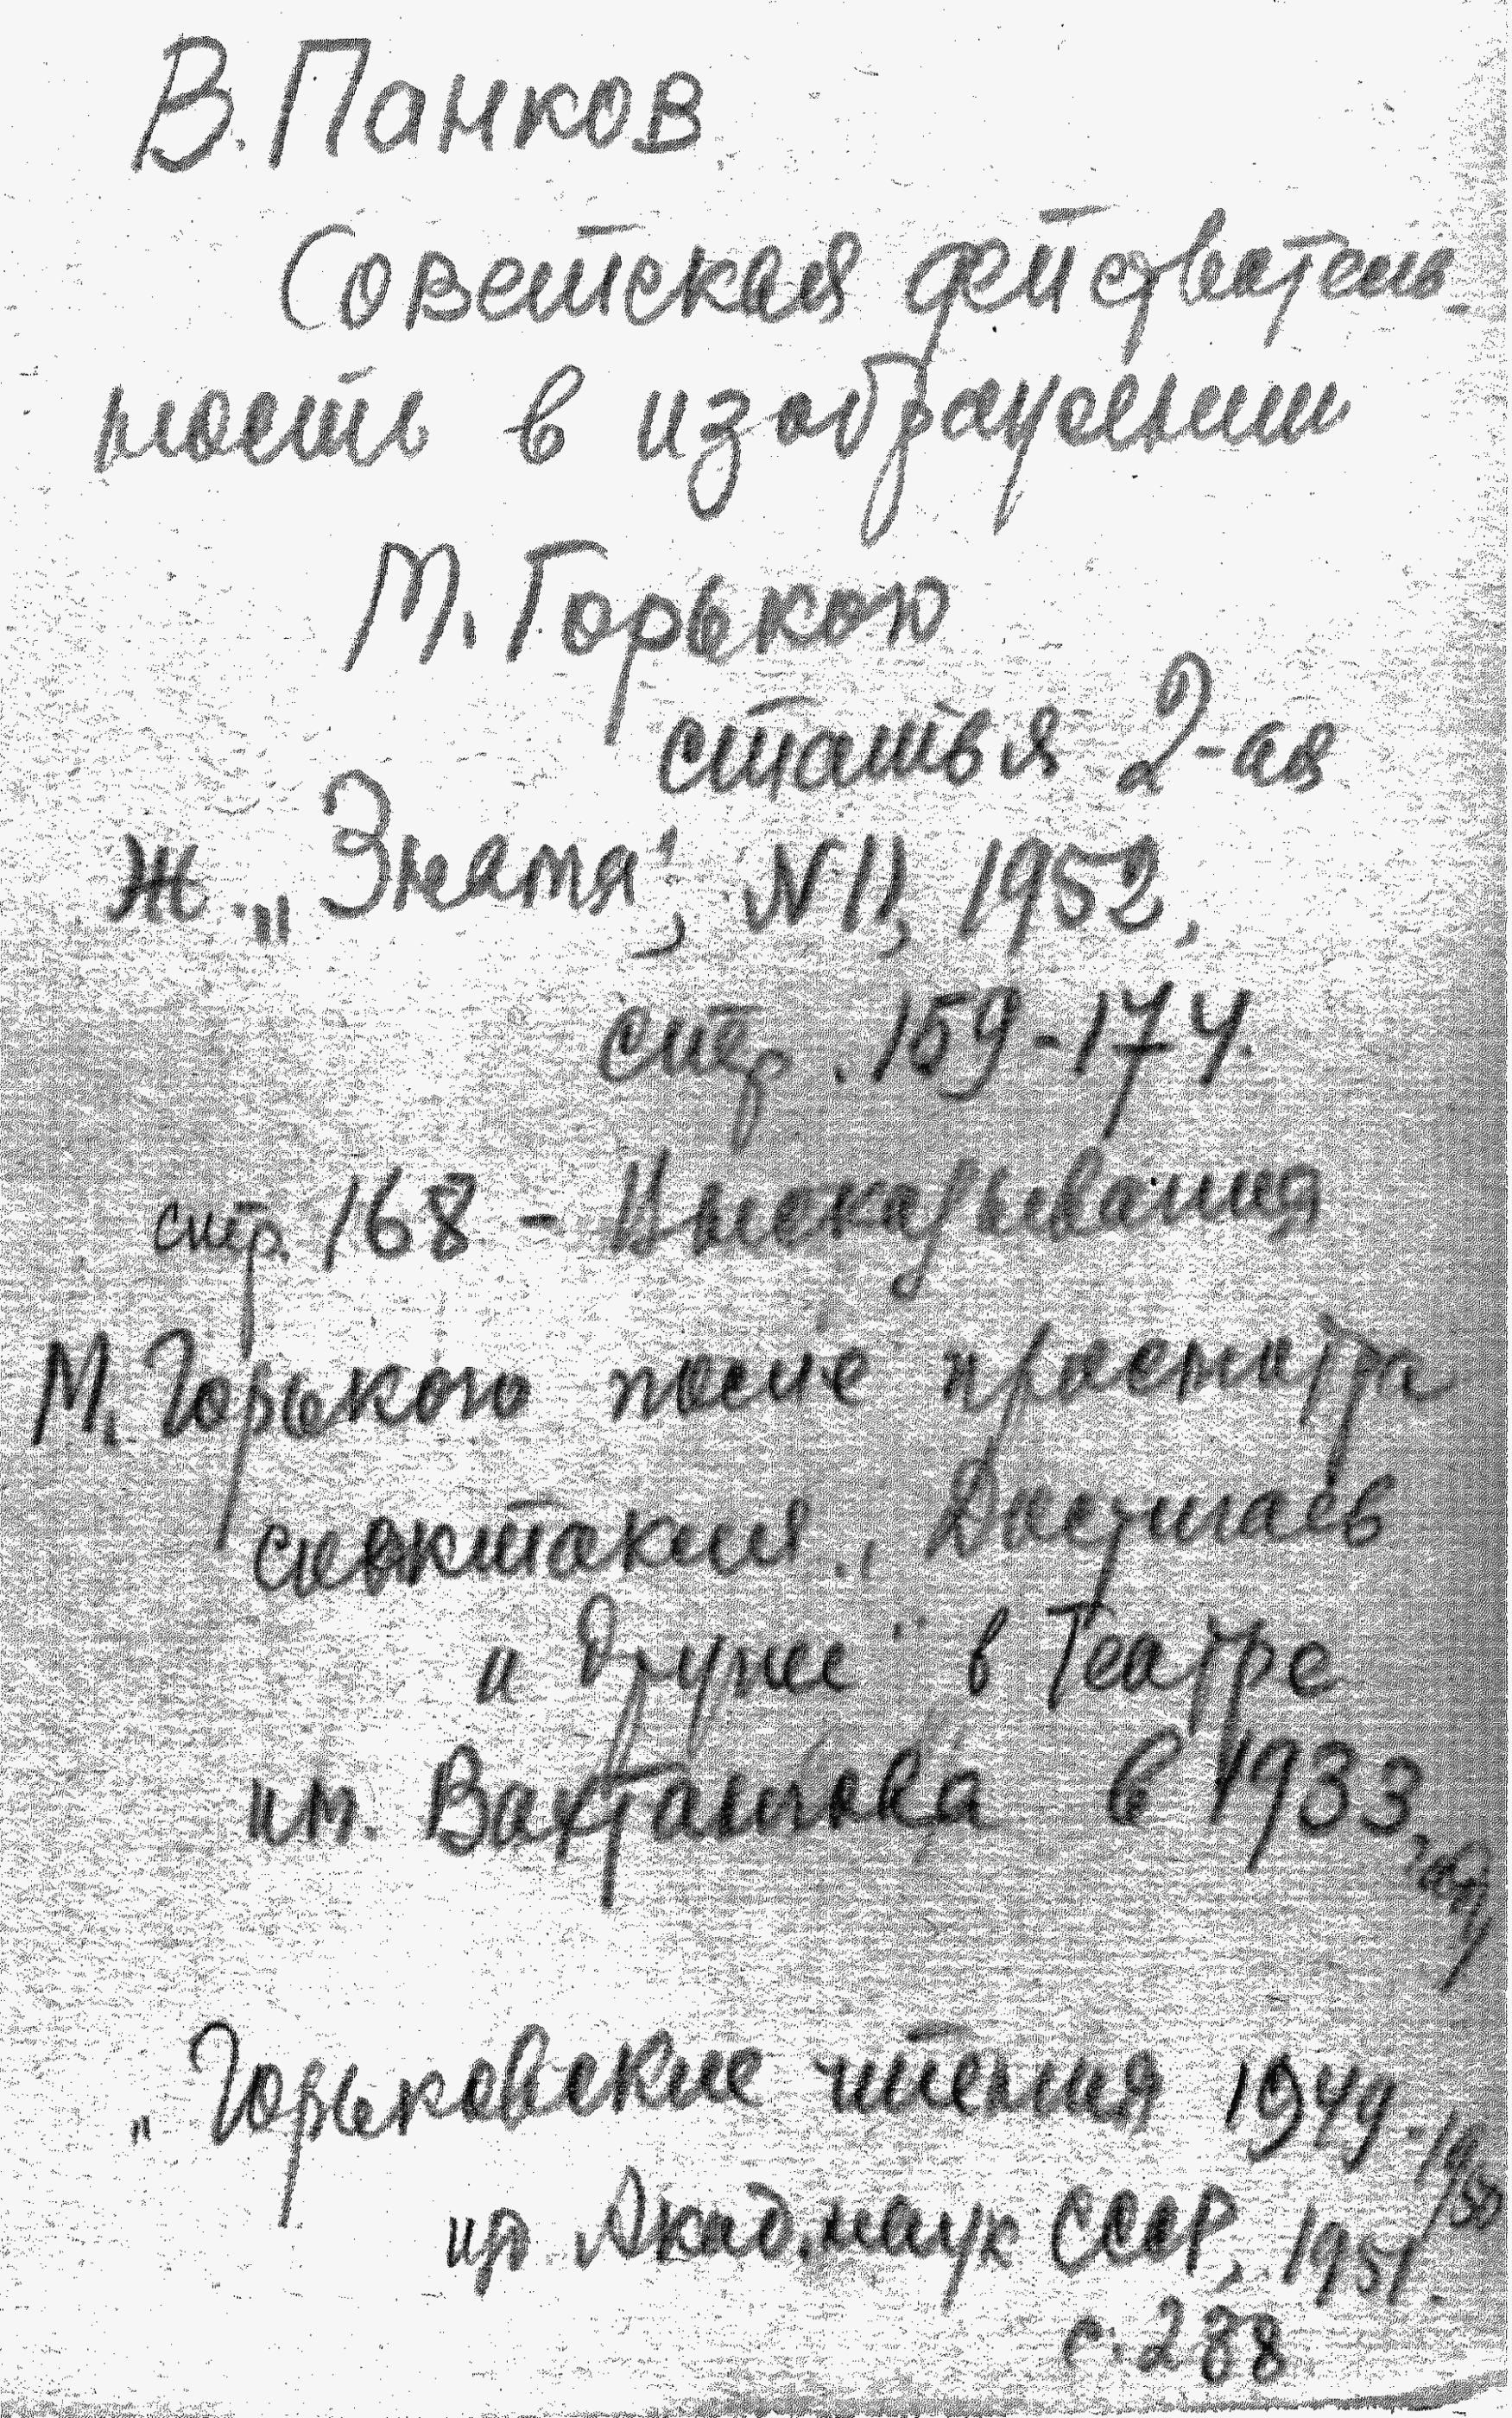 В. Панков
Советская действитель-
ность в изображении
М. Горького
статья 2-ая
Ж. „Знамя", N 11, 1952,
стр. 159-174.
стр. 168 - Высказывания
М. Горького после просмотра
спектакля „Достигаев
и другие" в Театре
им. Вахтангова в 1933 году
„Горьковские чтения 1949-1950
изд. Акад. наук СССР, 1951.
с. 288